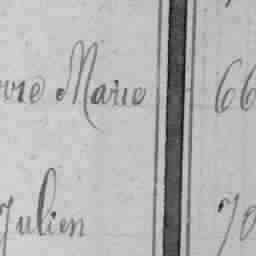 Marie 66
Julien 70